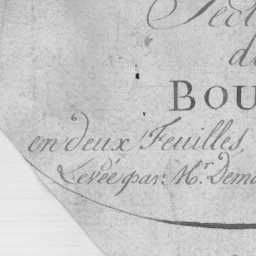 BOU
en deux Feuilles,
Levée par Mr. Dema